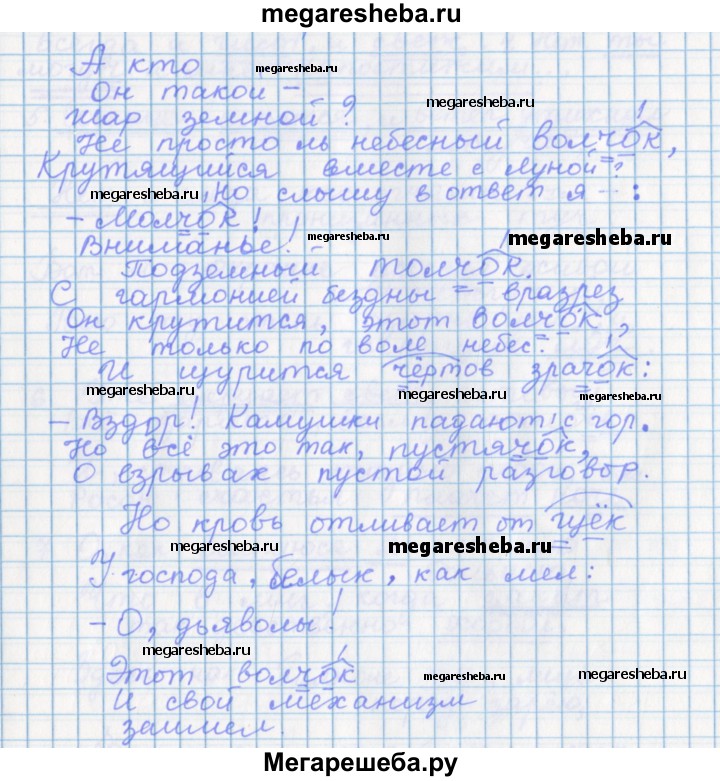 megaresheba.ru
А кто
megaresheba.ru
Он такой –
megaresheba.ru
шар земной?
Не просто ль небесный волчок,
Крутящийся вместе с Луной?
megaresheba.ru
, но слышу в ответ я – :
– Молчок!
Вниманье! –
megaresheba.ru
megaresheba.ru
Подземный толчок.
С гармонией бездны – вразрез
Он крутится, этот волчок,
Не только по воле небес.
И щурится чёртов зрачок:
megaresheba.ru
megaresheba.ru
megaresheba.ru
– Вздор! Камушки падают с гор.
Но всё это так, пустячок,
О взрывах пустой разговор.
Но кровь отливает от щёк
megaresheba.ru
megaresheba.ru
У господа, белых, как мел:
– О, дьяволы!
megaresheba.ru
Этот волчок
megaresheba.ru
megaresheba.ru
И свой механизм
заимел.
Мегарешеба.ру